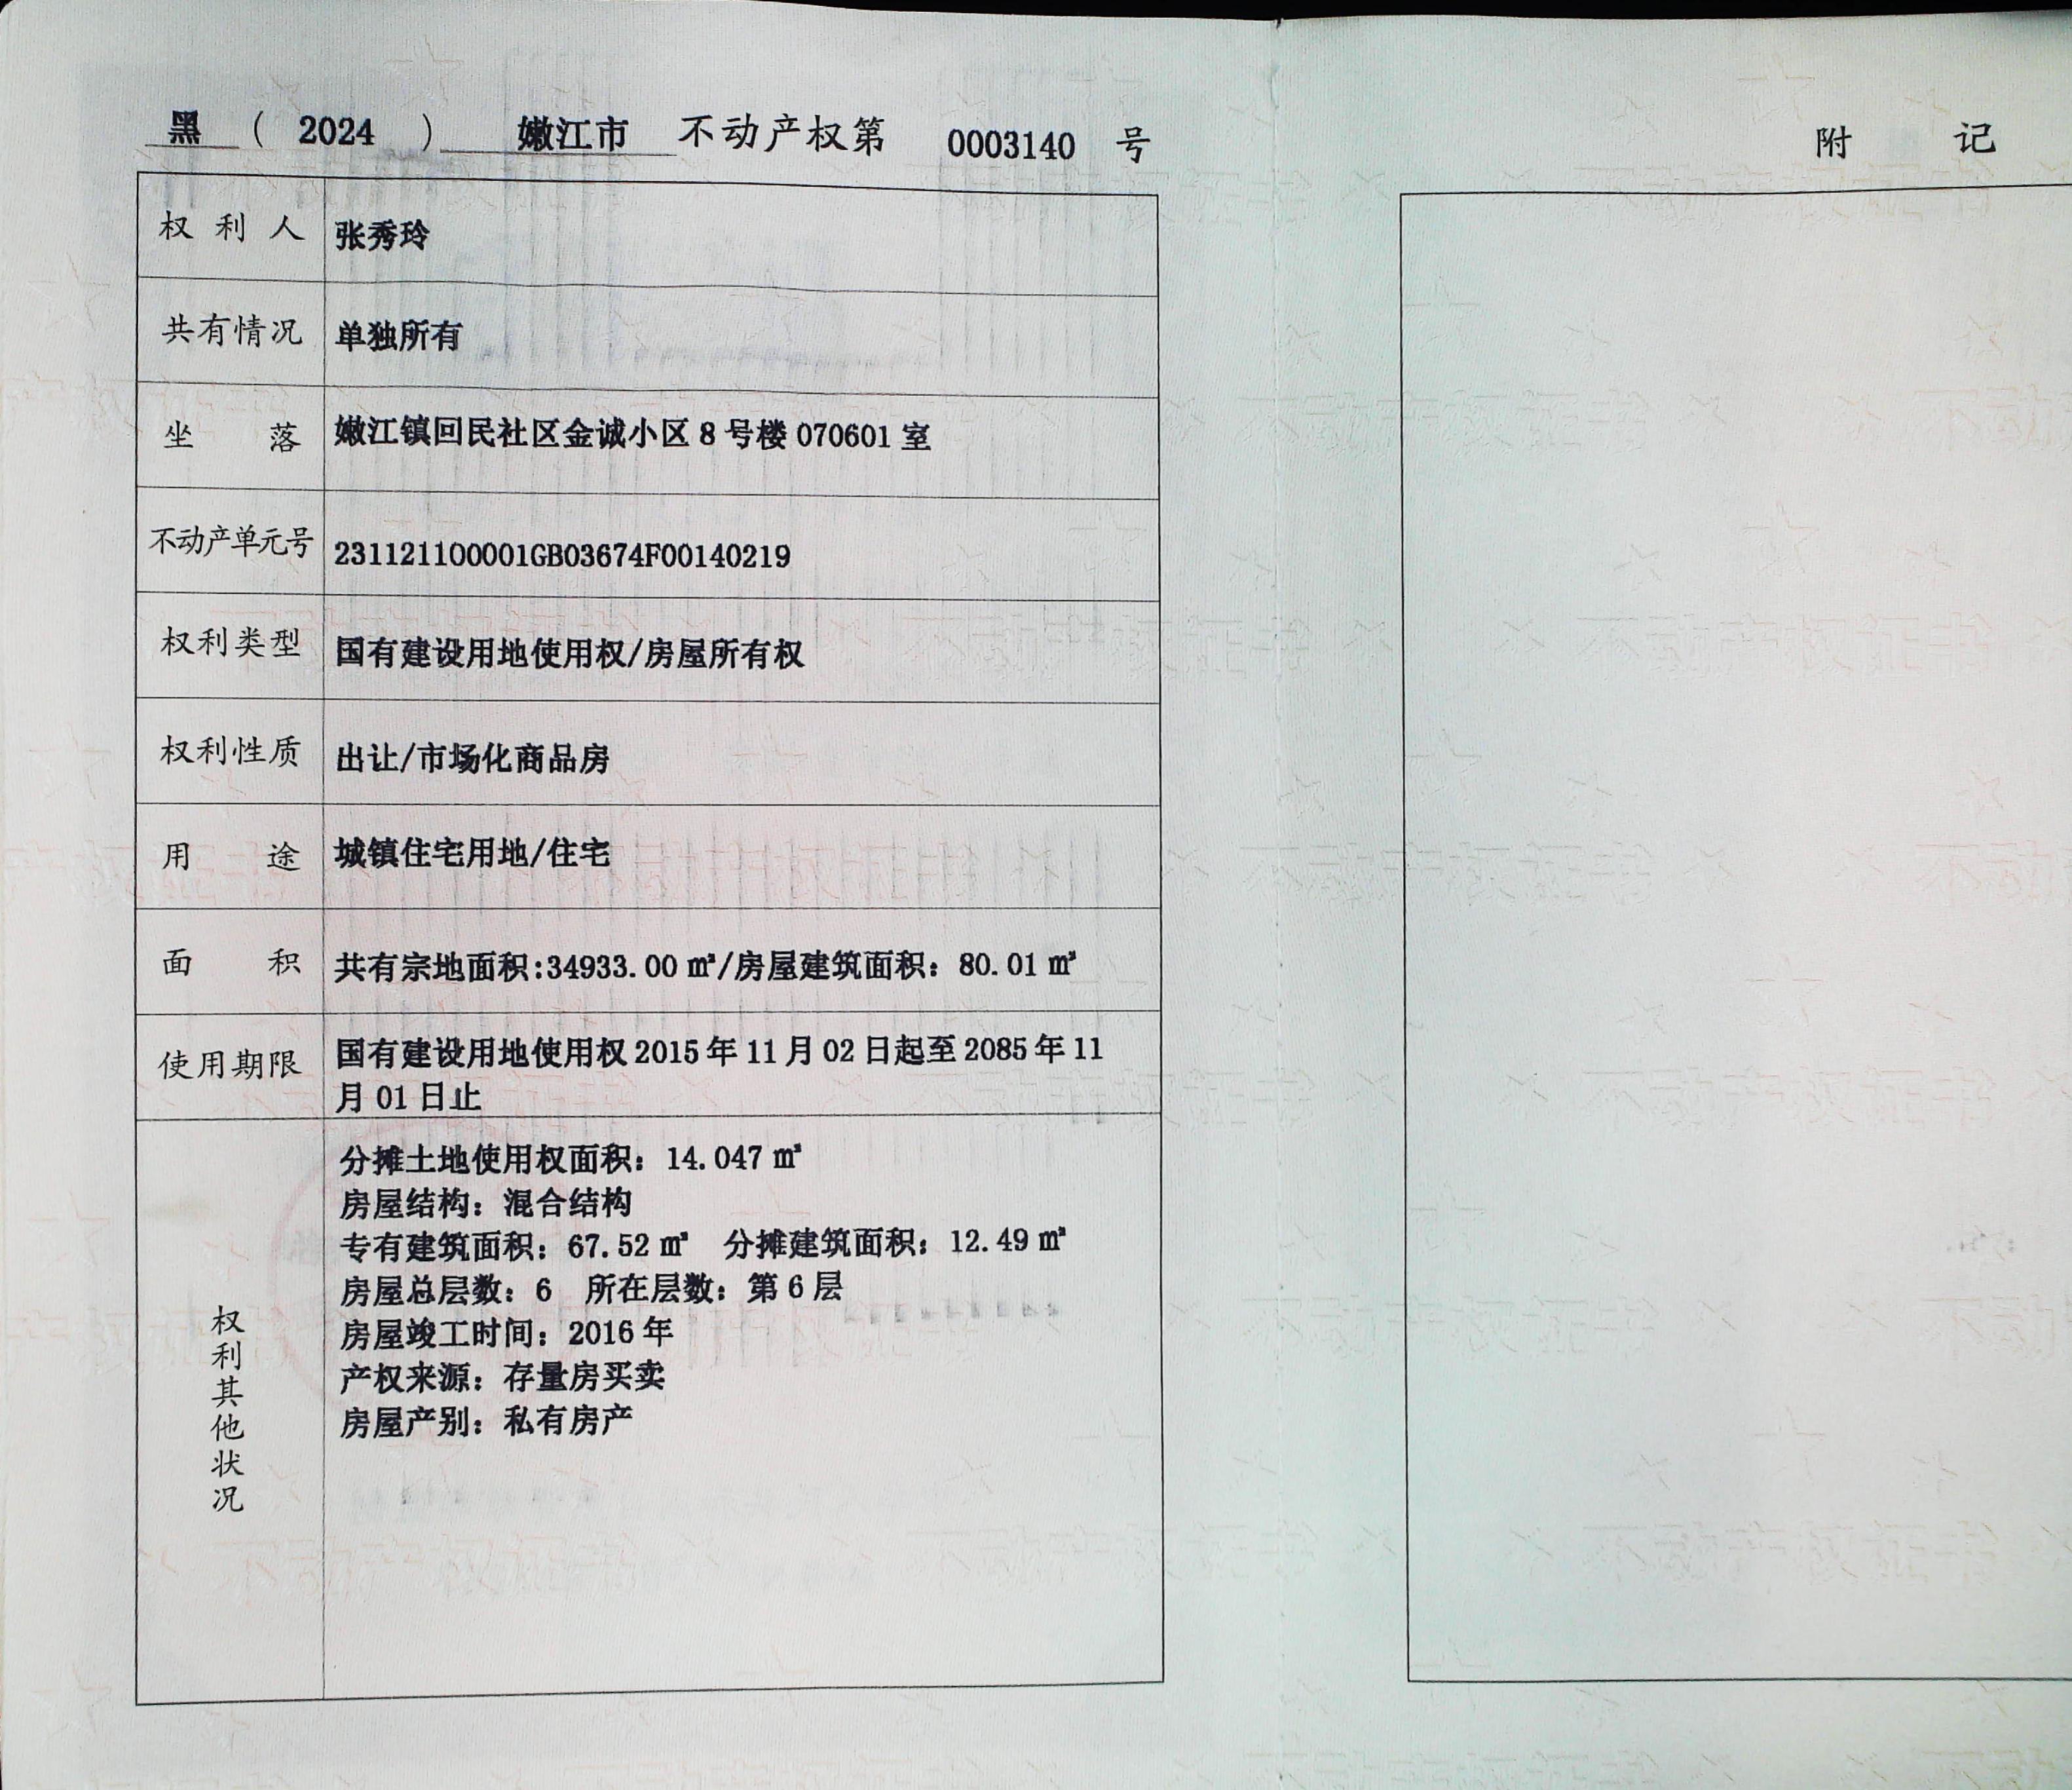 黑 ( 2024 ) 嫩江市 不动产权第 0003140 号
权利人 张秀玲
共有情况 单独所有
坐落 嫩江镇回民社区金诚小区 8 号楼 070601 室
不动产单元号 231121100001GB03674F00140219
权利类型 国有建设用地使用权/房屋所有权
权利性质 出让/市场化商品房
用途 城镇住宅用地/住宅
面积 共有宗地面积:34933.00 ㎡/房屋建筑面积: 80.01 ㎡
使用期限 国有建设用地使用权 2015 年 11 月 02 日起至 2085 年 11
月 01 日止
权利其他状况
分摊土地使用权面积: 14.047 ㎡
房屋结构: 混合结构
专有建筑面积: 67.52 ㎡ 分摊建筑面积: 12.49 ㎡
房屋总层数: 6 所在层数: 第 6 层
房屋竣工时间: 2016 年
产权来源: 存量房买卖
房屋产别: 私有房产
附记